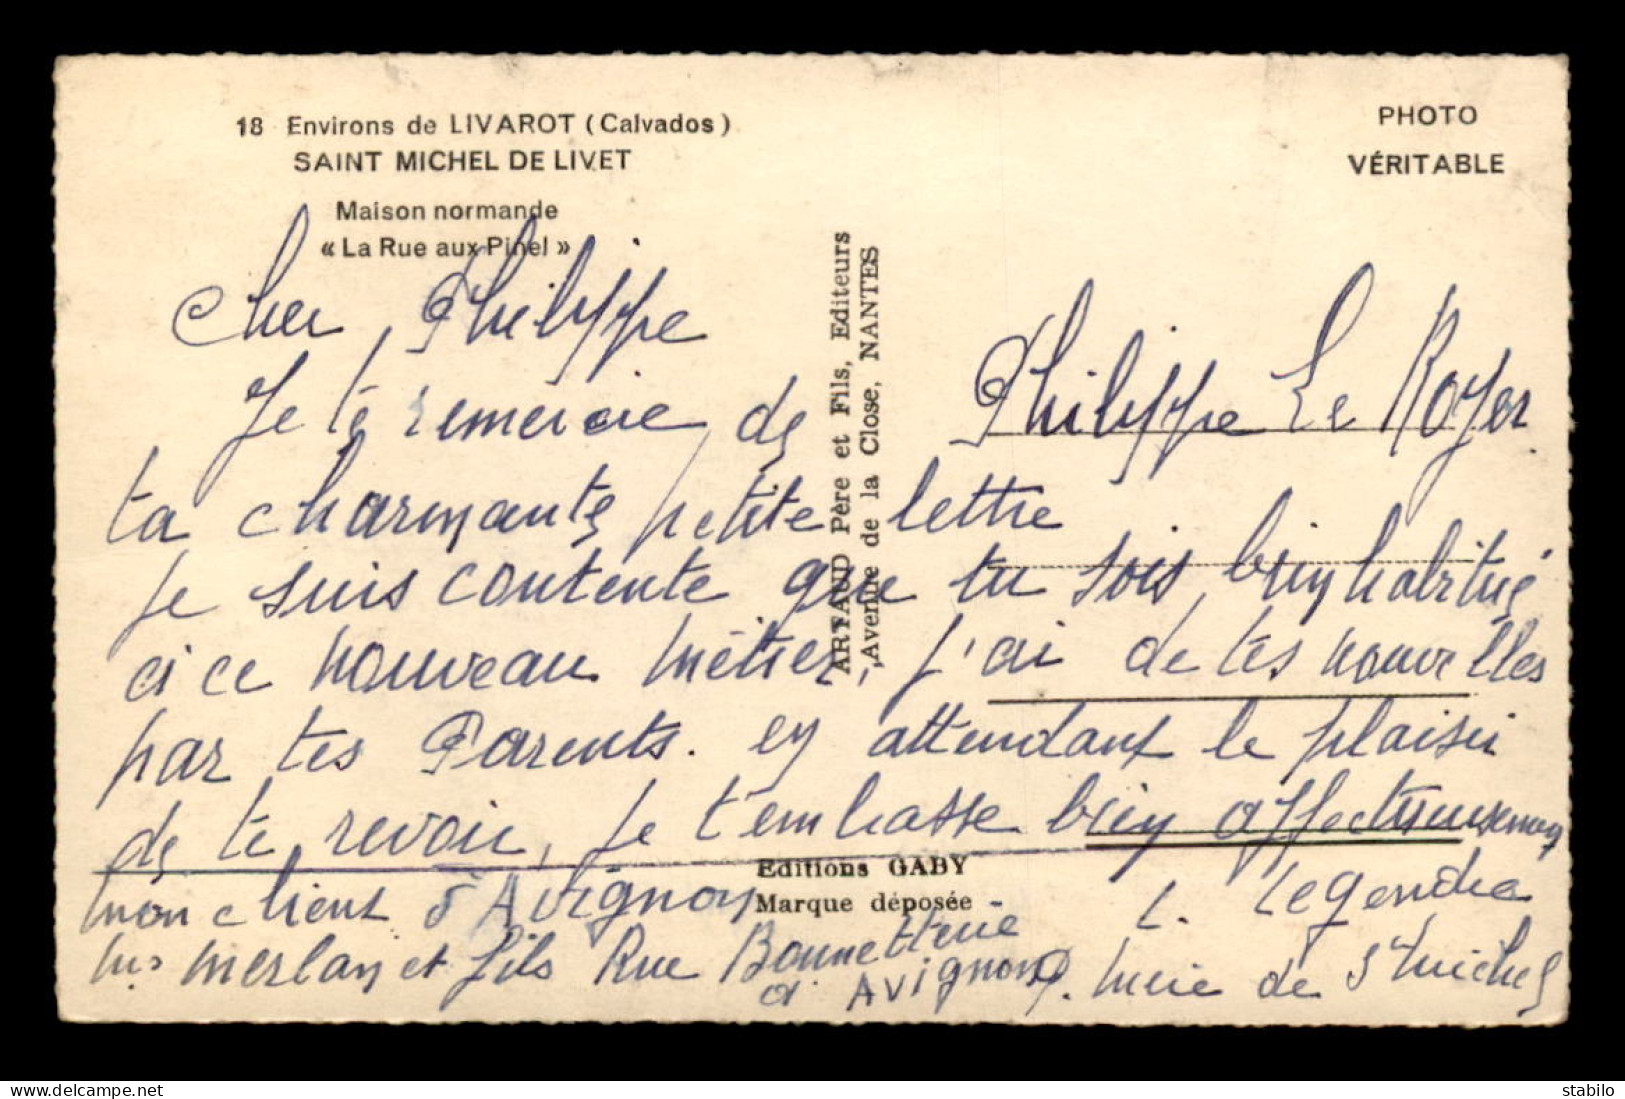 18 Environs de LIVAROT (Calvados)
SAINT MICHEL DE LIVET
Maison normande
« La Rue aux Pinel »
PHOTO
VÉRITABLE
ARTAUD Père et Fils, Editeurs
Avenue de la Close, NANTES
Cher Philippe
Philippe Le Royer
Je te remercie de
ta charmante petite lettre
je suis contente que tu sois bien habitué
a ce nouveau métier, j'ai de tes nouvelles
par tes Parents. en attendant le plaisir
de te revoir, je t'embrasse bien affectueusement
Editions GABY
Marque déposée
L. Legendre
mon client d'Avignon
Mrs Merlan et fils Rue Bonneterie
a Avignon
G. mère de St Michel
stabilo